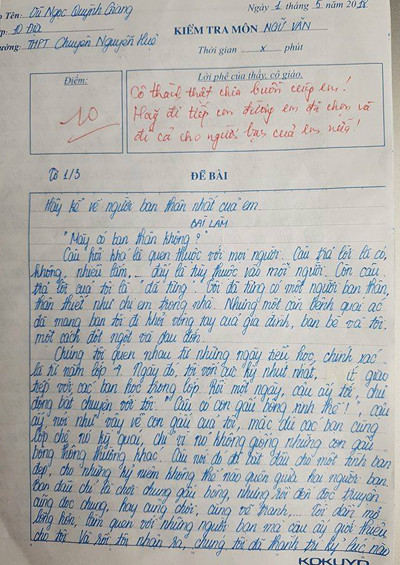 Tên: Vũ Ngọc Quỳnh Giang
Ngày 1 tháng 5 năm 2018
Lớp: 10 Địa
KIỂM TRA MÔN NGỮ VĂN
Trường: THPT Chuyên Nguyễn Huệ
Thời gian x phút
Điểm:
10
Lời phê của thầy, cô giáo
Cô thành thật chia buồn cùng em!
Hãy đi tiếp con đường em đã chọn và
đi cả cho người bạn của em nữa!
Tờ 1/3
ĐỀ BÀI
Hãy kể về người bạn thân nhất của em.
BÀI LÀM
"Mày có bạn thân không?"
Câu hỏi khá là quen thuộc với mọi người. Câu trả lời là có,
không, nhiều lắm,... đấy là tùy thuộc vào mỗi người. Còn câu
trả lời của tôi là "đã từng". Tôi đã từng có một người bạn thân,
thân thiết như chị em trong nhà. Nhưng một căn bệnh quái ác
đã mang bạn tôi đi khỏi vòng tay của gia đình, bạn bè và tôi
một cách đột ngột và đau đớn.
Chúng tôi quen nhau từ những ngày tiểu học, chính xác
là từ năm lớp 4. Ngày đó, tôi vốn cực kỳ nhút nhát, ít giao
tiếp với các bạn học trong lớp. Rồi một ngày, cậu ấy tới, chủ
động bắt chuyện với tôi. "Cậu có con gấu bông xinh thế!", cậu
ấy nói như vậy về con gấu của tôi, mặc dù các bạn cùng
lớp chê nó kỳ quái, chỉ vì nó không giống những con gấu
bông thông thường khác. Câu nói đó đã bắt đầu cho một tình bạn
đẹp, cho những kỷ niệm không thể nào quên giữa hai người bạn.
Ban đầu chỉ là chơi chung gấu bông, nhưng rồi đổi đọc truyện
cũng đọc chung, hay cùng chơi, cùng vẽ tranh,... Tôi dần mở
lòng hơn, làm quen với những người bạn mà cậu ấy giới thiệu
cho tôi. Và rồi tôi nhận ra, chúng tôi đã thành tri kỷ lúc nào
KOKUYO